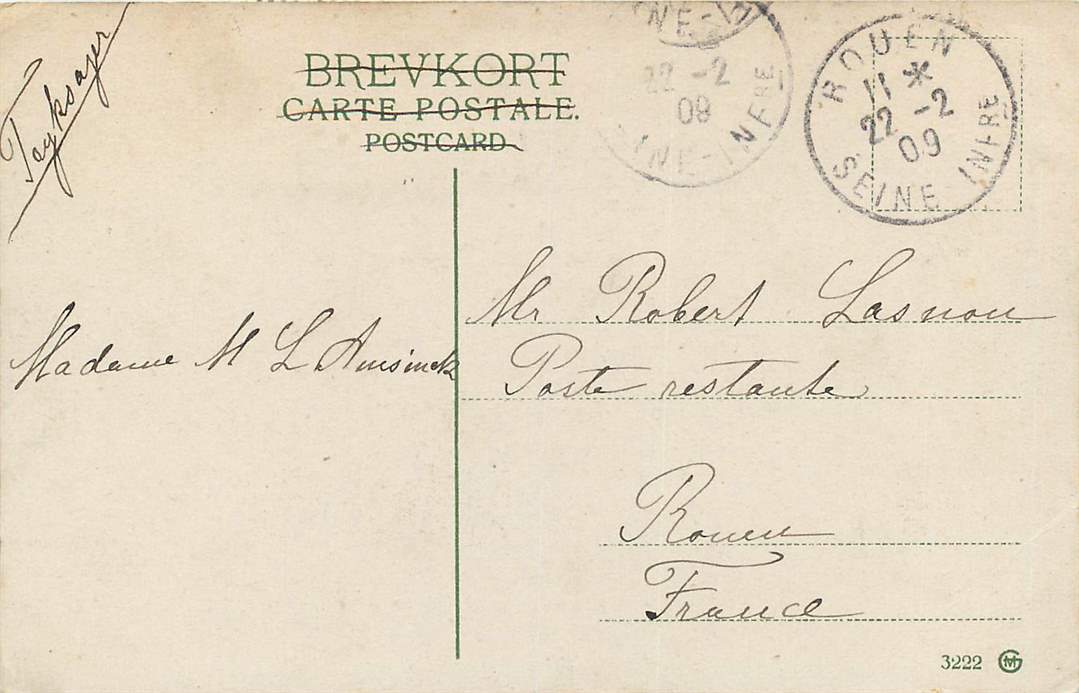 BREVKORT
CARTE POSTALE.
POSTCARD
NE-I
22 -2
09
INE-INFRE
ROUEN
11 *
22 -2
09
SEINE INFRE
Madame M L
Mr Robert Lasnon
Poste restante
Rouen
France
3222 GM